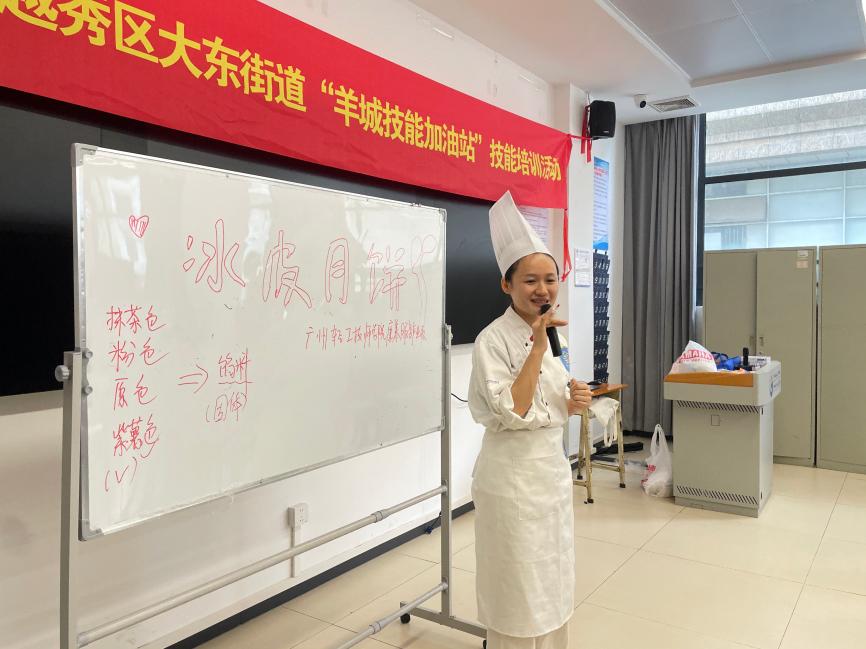 越秀区大东街道“羊城技能加油站”技能培训活动
冰皮月饼
抹茶色
粉色
原色
紫薯色
(V)
⇒ 馅料
(固体)
广州轻工技师学院